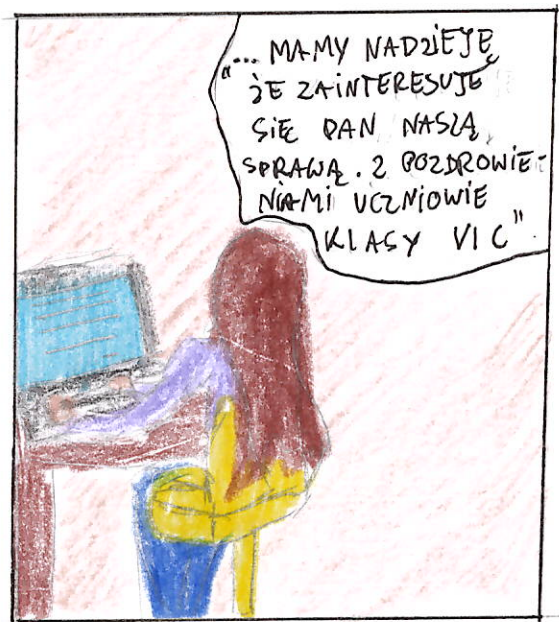 "... MAMY NADZIEJĘ
ŻE ZAINTERESUJE
SIĘ PAN NASZĄ
SPRAWĄ. Z POZDROWIE-
NIAMI UCZNIOWIE
KLASY VI C".